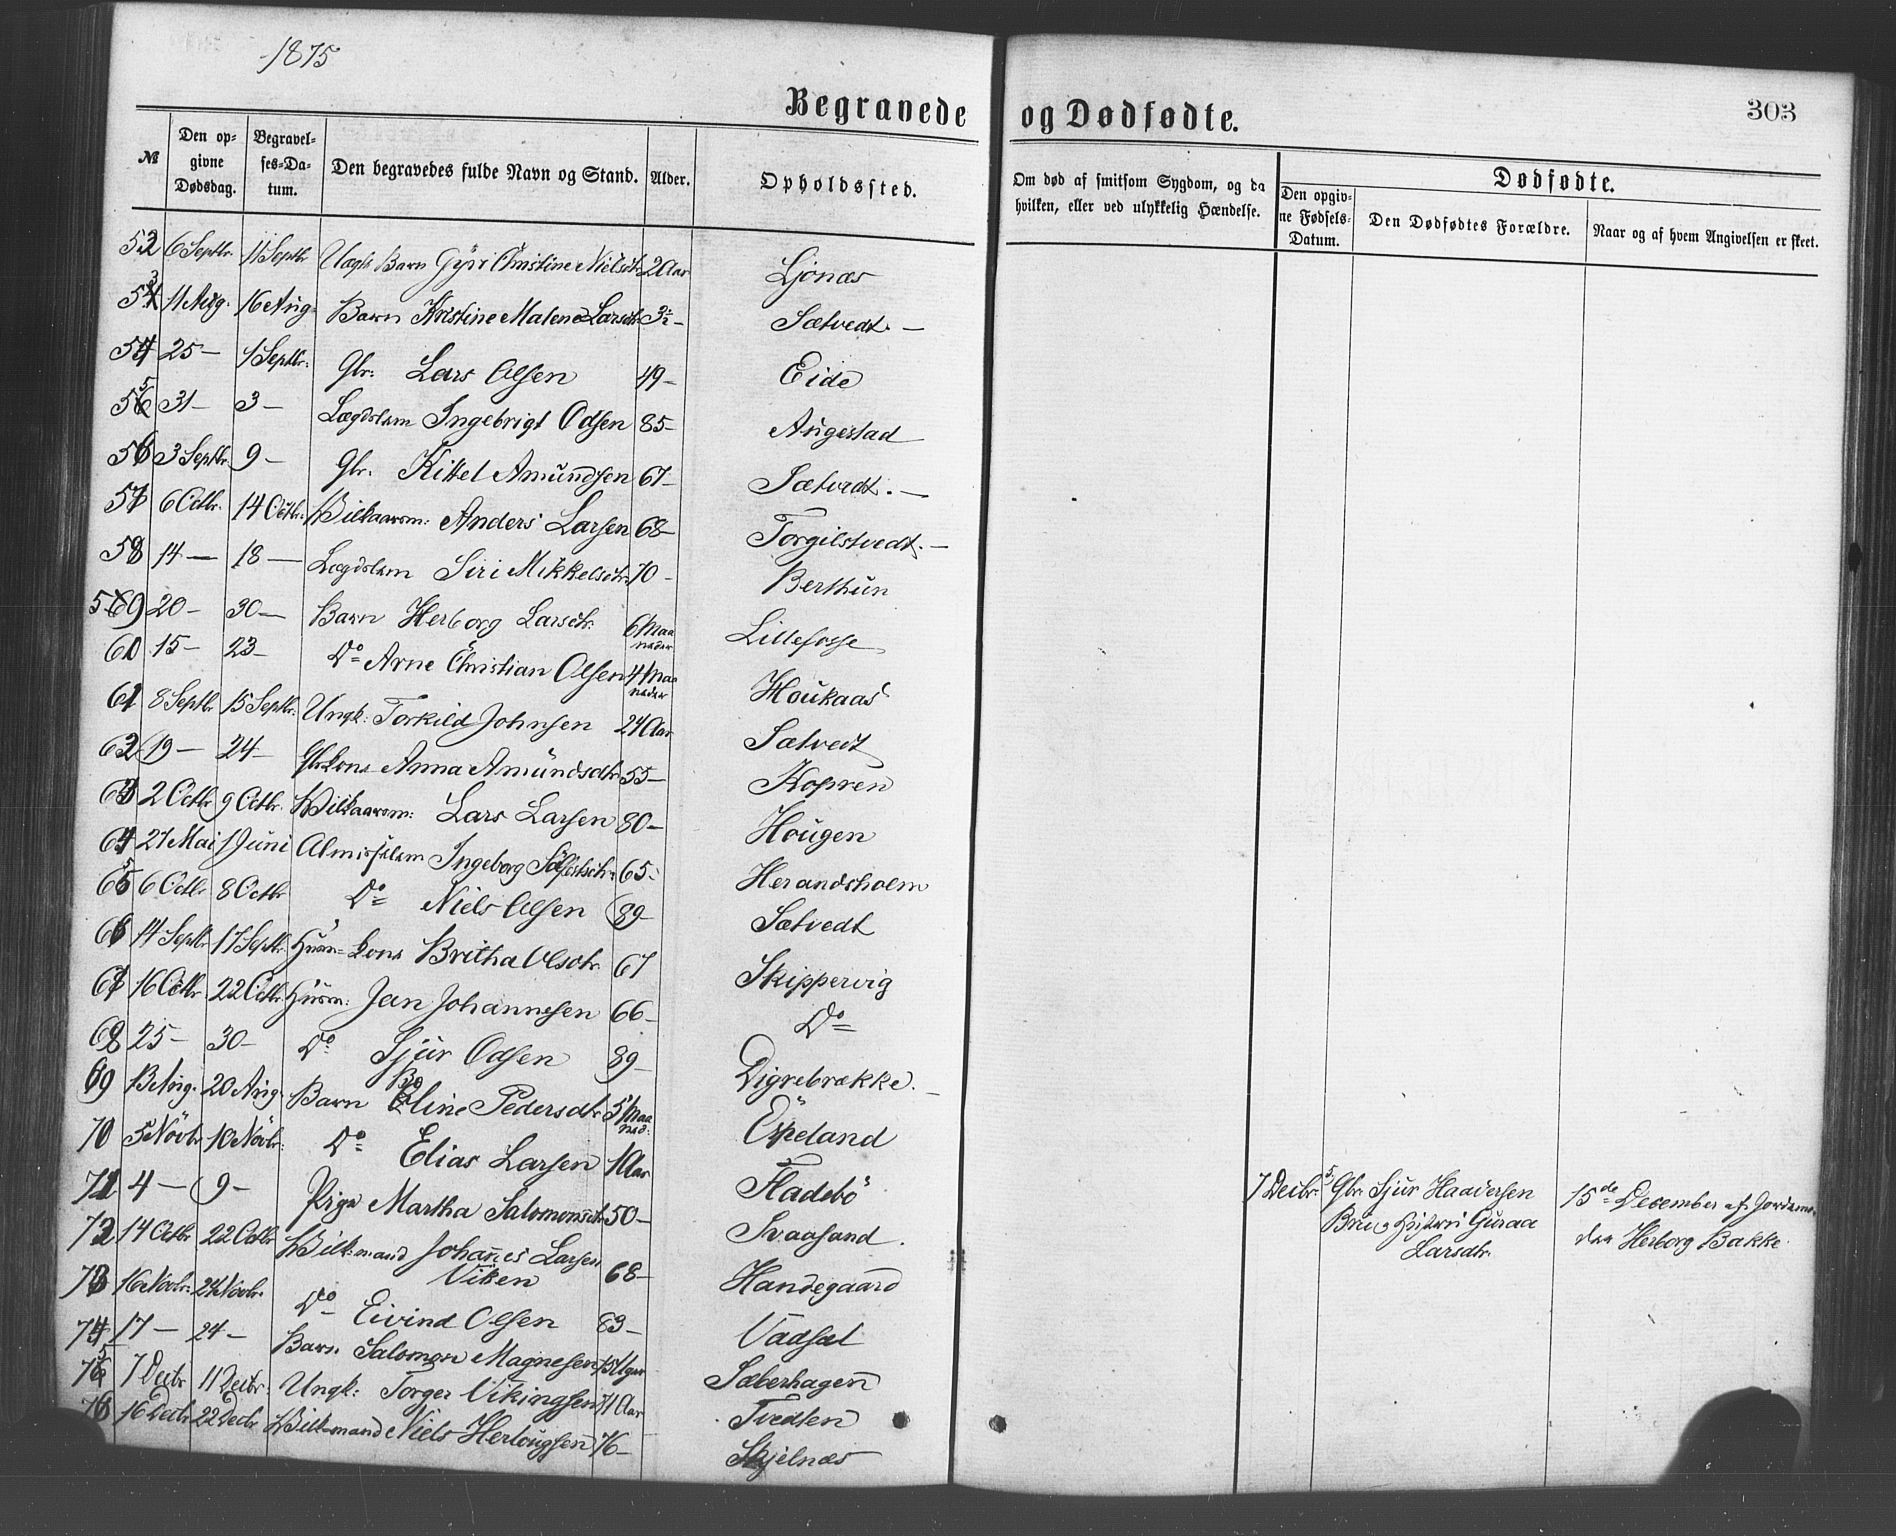 1875
Begravede og Dødfødte.
303
№ Den opgivne Dødsdag. Begravelses-Datum. Den begravedes fulde Navn og Stand. Alder. Opholdssted. Om død af smitsom Sygdom, og da hvilken, eller ved ulykkelig Hændelse. Dødfødte. Den opgivne Fødsels-Datum. Den Dødfødtes Forældre. Naar og af hvem Angivelsen er skeet.
52 6 Septbr. 11 Septbr Barn Christine Nielsdtr 2 Aar Ljonæs
53 11 Aug. 16 Aug. Barn Kristine Malene Larsdtr 3½ - Sætvedt. -
54 25 - 1 Septbr. Gbr: Lars Olsen 49 - Eide
55 31 - 3 - Lægdslem Ingebrigt Odsen 85 - Augestad
56 3 Septbr. 9 - Gbr. Kittel Amundsen 67 - Sætvedt. -
57 6 Octbr. 14 Octbr. Vilkaarsm: Anders Larsen 68 - Torgilstvedt. -
58 14 - 18 - Lægdslem Siri Mikkelsdtr. 70 - Berthun
59 20 - 30 - Barn Herborg Larsdtr. 6 Maaneder Lillefosse
60 15 - 23 - Do Arne Christian Olsen 4 Maaneder Houkaas
61 8 Septbr 15 Septbr. Ungk: Torkild Johnsen 24 Aar Sætvedt
62 19 - 24 - Gbrkone Anna Amundsdtr 55 - Kopren
63 2 Octbr 9 Octbr. Vilkaarsm: Lars Larsen 80 - Hougen
64 27 Mai 1 Juni Almisselem Ingeborg 65 - Herandsholm
65 6 Octbr 8 Octbr Do Niels Olsen 89 - Sætvedt
66 14 Septbr 17 Septbr. Husm-kone Britha Olsdtr. 67 Skippervig
67 16 Octbr. 22 Octbr. Husm: Jan Johannesen 66 - Do
68 25 - 30 - Do Sjur Odsen 89 - Digrebrække. -
69 13 Aug. 20 Aug. Barn Eline Pedersdtr. 5 Maaned: Espeland
70 5 Novbr 10 Novbr: Do Elias Larsen 1 Aar Fladebö
71 4 - 9 - Pige Martha Salomonsdtr 50 - Svaasand.
72 14 Octbr 22 Octbr Vilk-mand Johannes Larsen Viken 68 - Handegaard
73 16 Novbr: 24 Novbr. Do Eivind Olsen 83 - Vadsæl
74 17 - 24 - Barn Salomon Magnesen Uger Sæberhagen
75 7 Decbr 11 Decbr. Ungk: Torger Vikingsen 71 Aar Tvedten
76 16 Decbr 22 Decbr Vilk-mand Niels Herlougsen 76 - Skjelnæs
7 Decbr. Gbr. Sjur Haaversen
Bru og Hustru Guraa
Larsdtr.
15de December af Jordemo-
der Herborg Bakke.